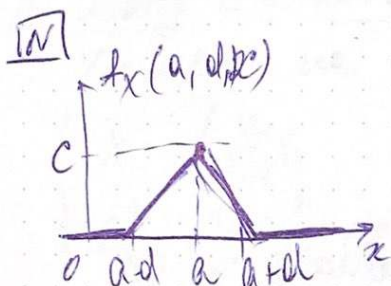 IN
f_X(a, d, x)
C
0 a-d a a+d x